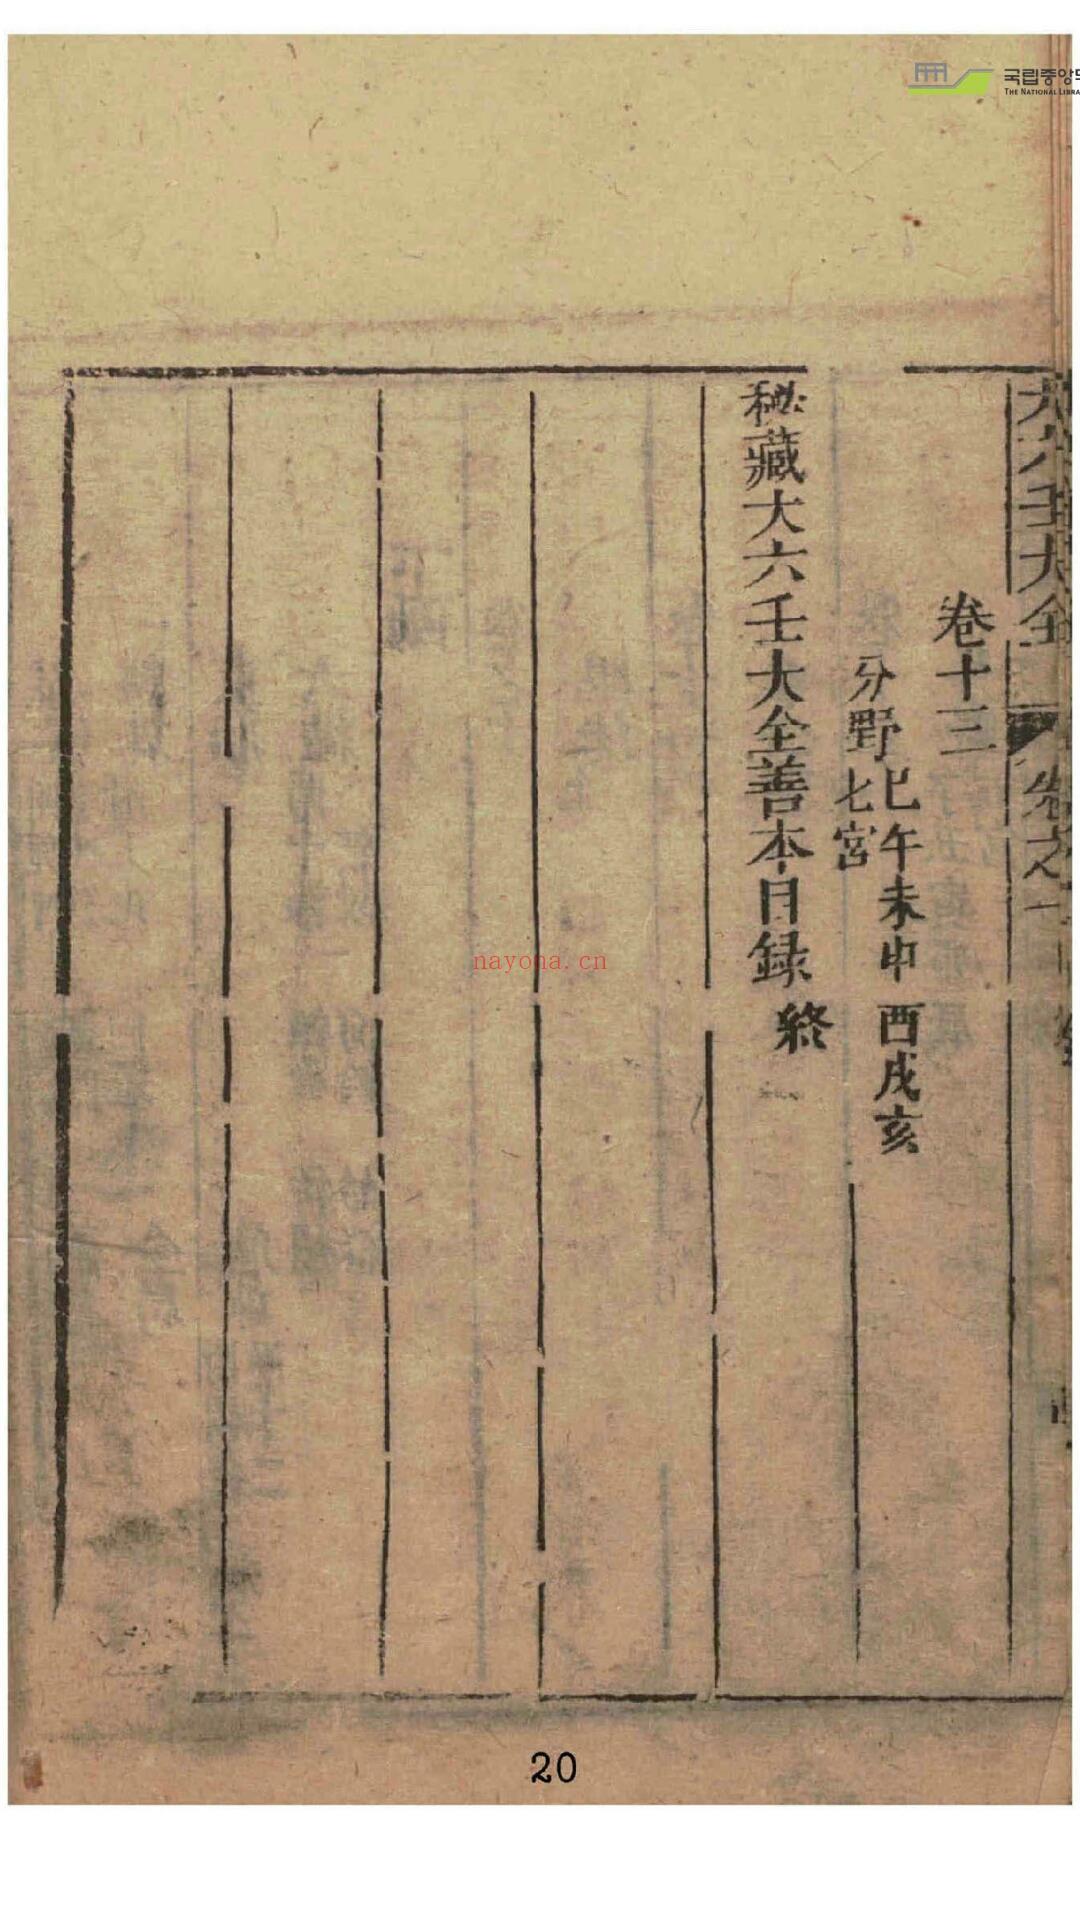 국립중앙도
THE NATIONAL LIBRA
大六壬大全
卷之一
卷十三
分野
巳午未申酉戌亥
七宮
秘藏大六壬大全善本目録終
nayona.cn
20